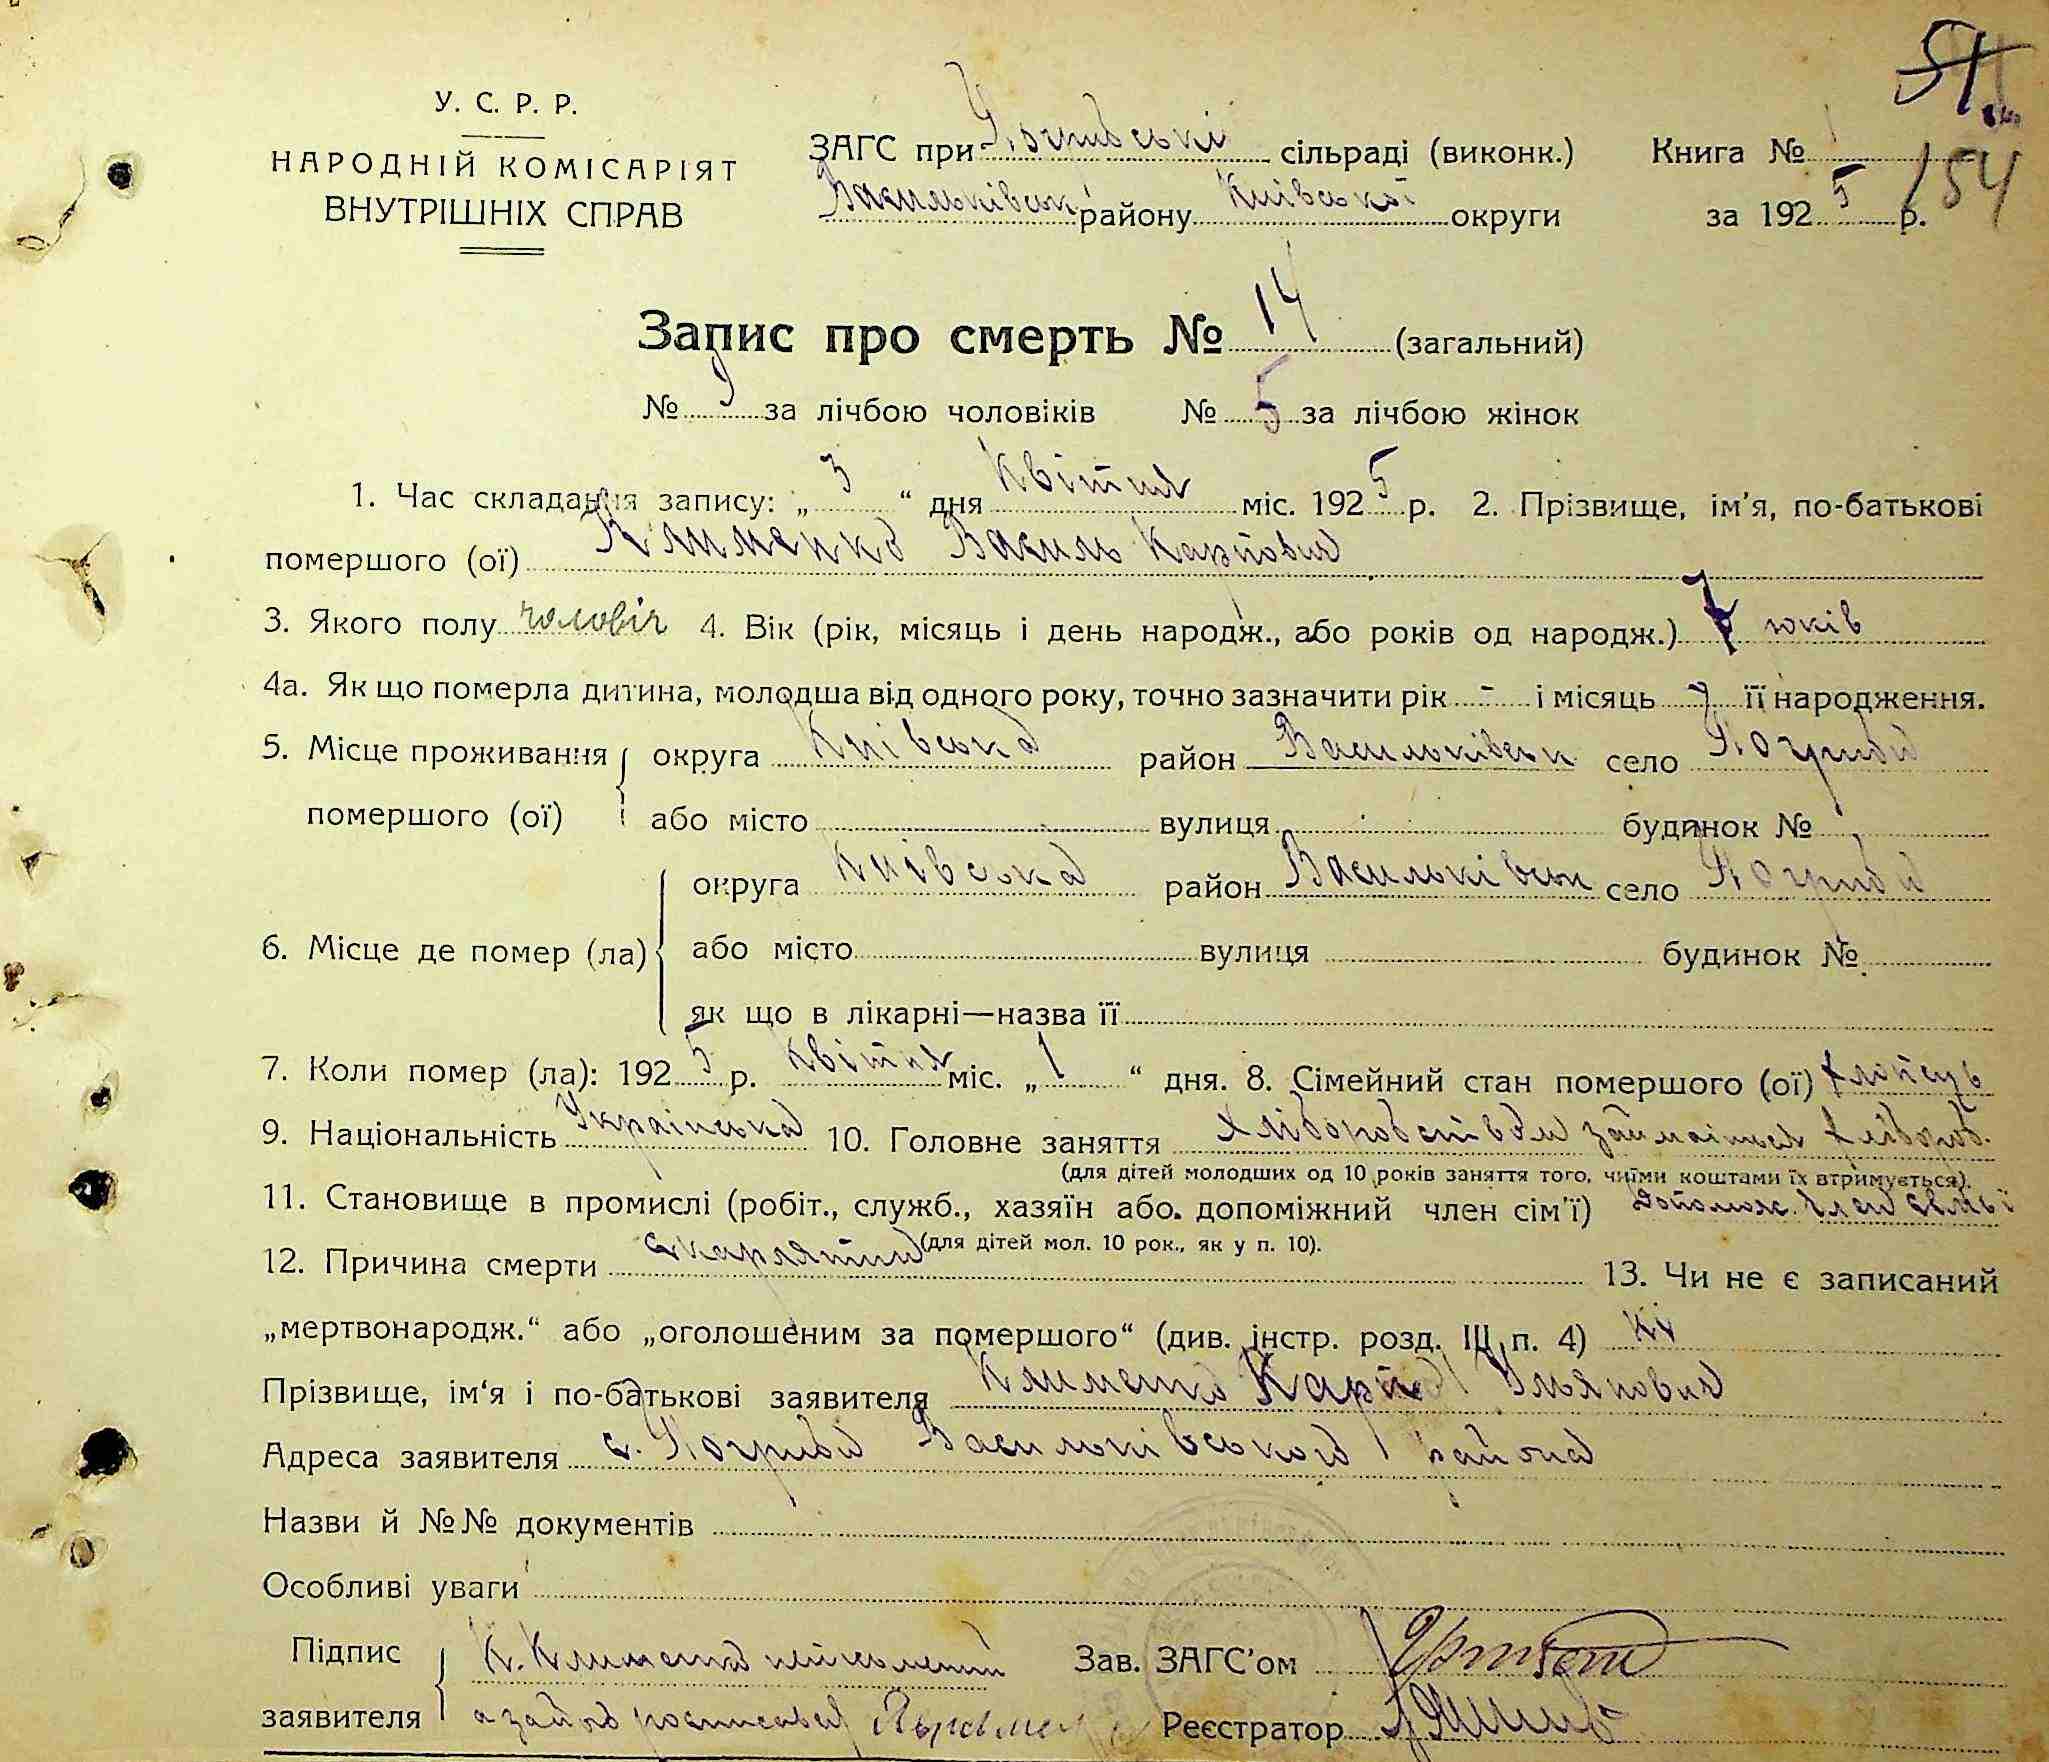 51
154
У. С. Р. Р.
НАРОДНІЙ КОМІСАРІЯТ
ВНУТРІШНІХ СПРАВ
ЗАГС при Погребській сільраді (виконк.) Книга № 1
Васильківськ району Київської округи за 1925 р.
Запис про смерть № 14 (загальний)
№ 9 за лічбою чоловіків № 5 за лічбою жінок
1. Час складання запису: „3“ дня Квітня міс. 1925 р. 2. Прізвище, ім’я, по-батькові
помершого (ої) Клименко Василь Карпович
3. Якого полу чоловіч 4. Вік (рік, місяць і день народж., або років од народж.) 7 років
4а. Як що померла дитина, молодша від одного року, точно зазначити рік - і місяць її народження.
5. Місце проживання помершого (ої) округа Київська район Васильківськ село Погриби
або місто вулиця будинок №
6. Місце де помер (ла) округа Київська район Васильківськ село Погриби
або місто вулиця будинок №
як що в лікарні—назва її
7. Коли помер (ла): 1925 р. Квітня міс. „1“ дня. 8. Сімейний стан помершого (ої) хлопець
9. Національність Українська 10. Головне заняття хліборобством займаіться хлібороб.
(для дітей молодших од 10 років заняття того, чиїми коштами їх втримується).
11. Становище в промислі (робіт., служб., хазяїн або допоміжний член сім’ї) допомож. член сем’ї
(для дітей мол. 10 рок., як у п. 10).
12. Причина смерти скарлятина 13. Чи не є записаний
„мертвонародж.“ або „оголошеним за помершого“ (див. інстр. розд. III п. 4) ні
Прізвище, ім‘я і по-батькові заявителя Клименко Карпо Улянович
Адреса заявителя с. Погриби Васильківського району
Назви й №№ документів
Особливі уваги
Підпис заявителя К. Клименко неграмотний
а за його росписався
Зав. ЗАГС’ом
Реєстратор